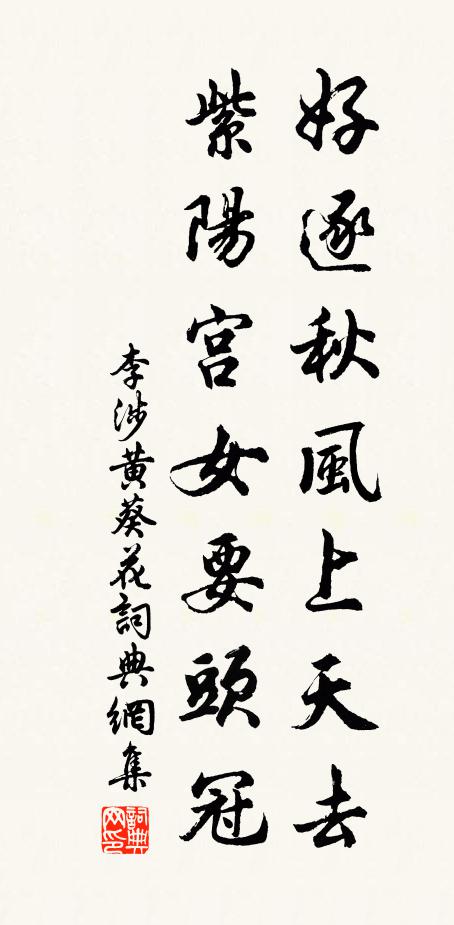 好逐秋風上天去
紫陽宮女要頭冠
李涉黃葵花詞典網集
詞典网印